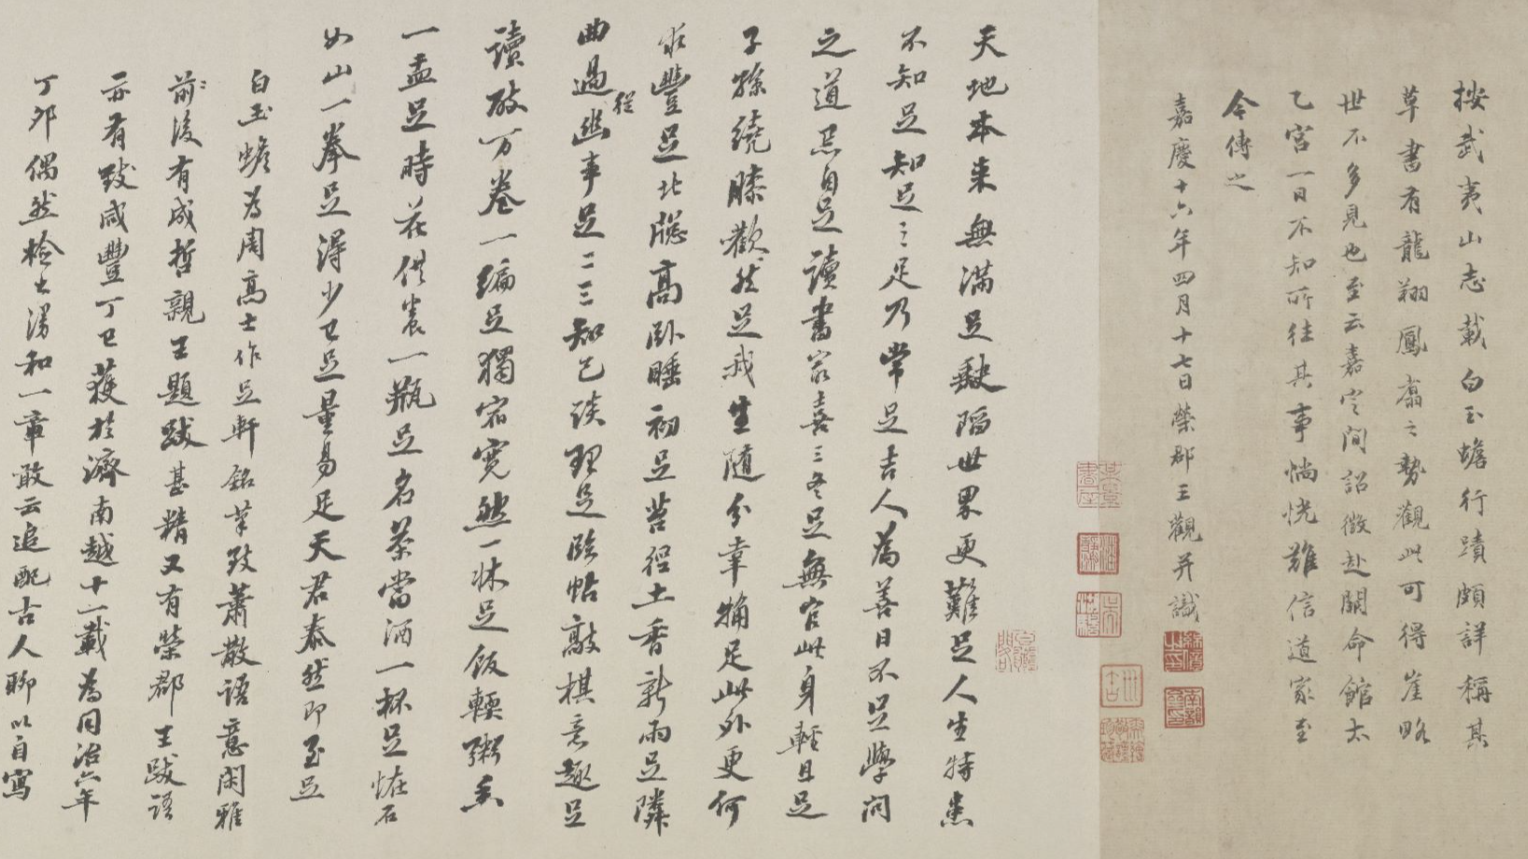 按武夷山志載白玉蟾行蹟頗詳稱其
草書有龍翔鳳翥之勢觀此可得崖略
世不多見也至云嘉定間詔徵赴闕命館太
乙宮一日不知所往其事惝恍難信道家至
今傳之
嘉慶十六年四月十七日榮郡王觀并識
天地本來無滿足缺陷世界更難足人生特患
不知足知足之足乃常足吉人為善日不足學問
之道忌自足讀書最喜三冬足無官此身輕且足
子孫繞膝歡然足我生隨分幸稱足此外更何
求豐足北牕高臥睡初足苔徑土香新雨足隣
曲過從幽事足二三知己談理足臨帖敲棋意趣足
讀破万卷一編足獨宿寬然一牀足飯輭粥香
一盂足時花供養一瓶足名茶當酒一杯足怪石
如山一拳足得少已足量易足天君泰然即至足
白玉蟾為周高士作足軒銘筆致蕭散語意閑雅
前後有成哲親王題跋甚精又有榮郡王跋語
亦有致咸豐丁巳獲於濟南越十一載為同治六年
丁卯偶然檢出漫和一章敢云追配古人聊以自寫